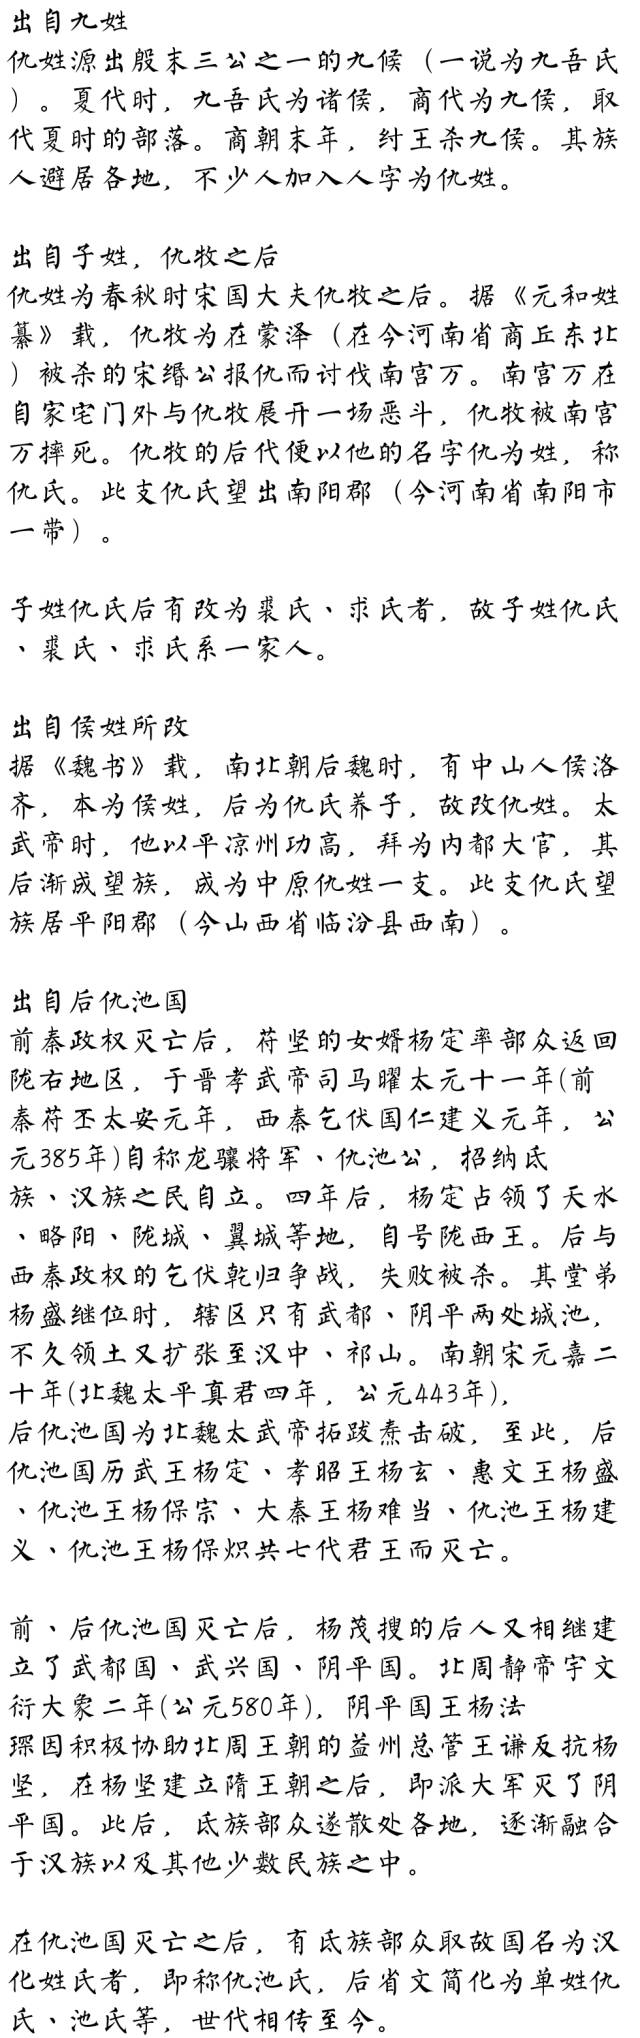 出自九姓
仇姓源出殷末三公之一的九候（一说为九吾氏
）。夏代时，九吾氏为诸侯，商代为九侯，取
代夏时的部落。商朝末年，纣王杀九侯。其族
人避居各地，不少人加入人字为仇姓。
出自子姓，仇牧之后
仇姓为春秋时宋国大夫仇牧之后。据《元和姓
纂》载，仇牧为在蒙泽（在今河南省商丘东北
）被杀的宋缗公报仇而讨伐南宫万。南宫万在
自家宅门外与仇牧展开一场恶斗，仇牧被南宫
万摔死。仇牧的后代便以他的名字仇为姓，称
仇氏。此支仇氏望出南阳郡（今河南省南阳市
一带）。
子姓仇氏后有改为裘氏、求氏者，故子姓仇氏
、裘氏、求氏系一家人。
出自侯姓所改
据《魏书》载，南北朝后魏时，有中山人侯洛
齐，本为侯姓，后为仇氏养子，故改仇姓。太
武帝时，他以平凉州功高，拜为内都大官，其
后渐成望族，成为中原仇姓一支。此支仇氏望
族居平阳郡（今山西省临汾县西南）。
出自后仇池国
前秦政权灭亡后，苻坚的女婿杨定率部众返回
陇右地区，于晋孝武帝司马曜太元十一年(前
秦苻丕太安元年，西秦乞伏国仁建义元年，公
元385年)自称龙骧将军、仇池公，招纳氐
族、汉族之民自立。四年后，杨定占领了天水
、略阳、陇城、翼城等地，自号陇西王。后与
西秦政权的乞伏乾归争战，失败被杀。其堂弟
杨盛继位时，辖区只有武都、阴平两处城池，
不久领土又扩张至汉中、祁山。南朝宋元嘉二
十年(北魏太平真君四年，公元443年)，
后仇池国为北魏太武帝拓跋焘击破，至此，后
仇池国历武王杨定、孝昭王杨玄、惠文王杨盛
、仇池王杨保宗、大秦王杨难当、仇池王杨建
义、仇池王杨保炽共七代君王而灭亡。
前、后仇池国灭亡后，杨茂搜的后人又相继建
立了武都国、武兴国、阴平国。北周静帝宇文
衍大象二年(公元580年)，阴平国王杨法
琛因积极协助北周王朝的益州总管王谦反抗杨
坚，在杨坚建立隋王朝之后，即派大军灭了阴
平国。此后，氐族部众遂散处各地，逐渐融合
于汉族以及其他少数民族之中。
在仇池国灭亡之后，有氐族部众取故国名为汉
化姓氏者，即称仇池氏，后省文简化为单姓仇
氏、池氏等，世代相传至今。